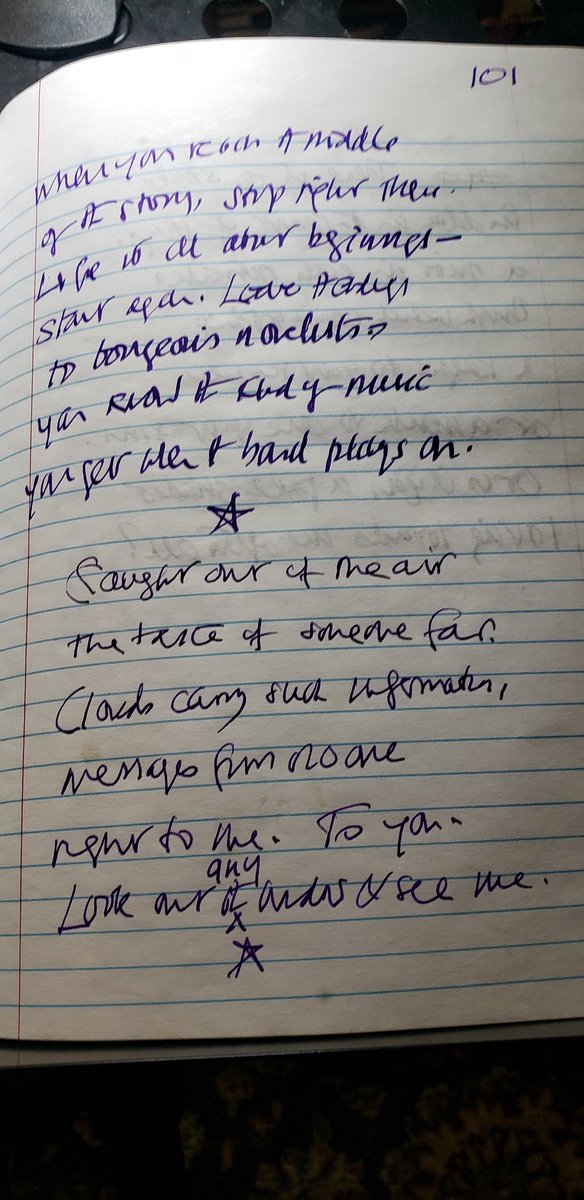 101
when you reach A middle
of A story, stop right there.
Life is all about beginnings—
start again. Leave A endings
to bourgeois novelists
you know A study music
younger when A band plays on.
Caught out of the air
the taste of someone far.
Clouds carry such information,
messages from no one
right to me. To you.
any
Look out A window & see me.